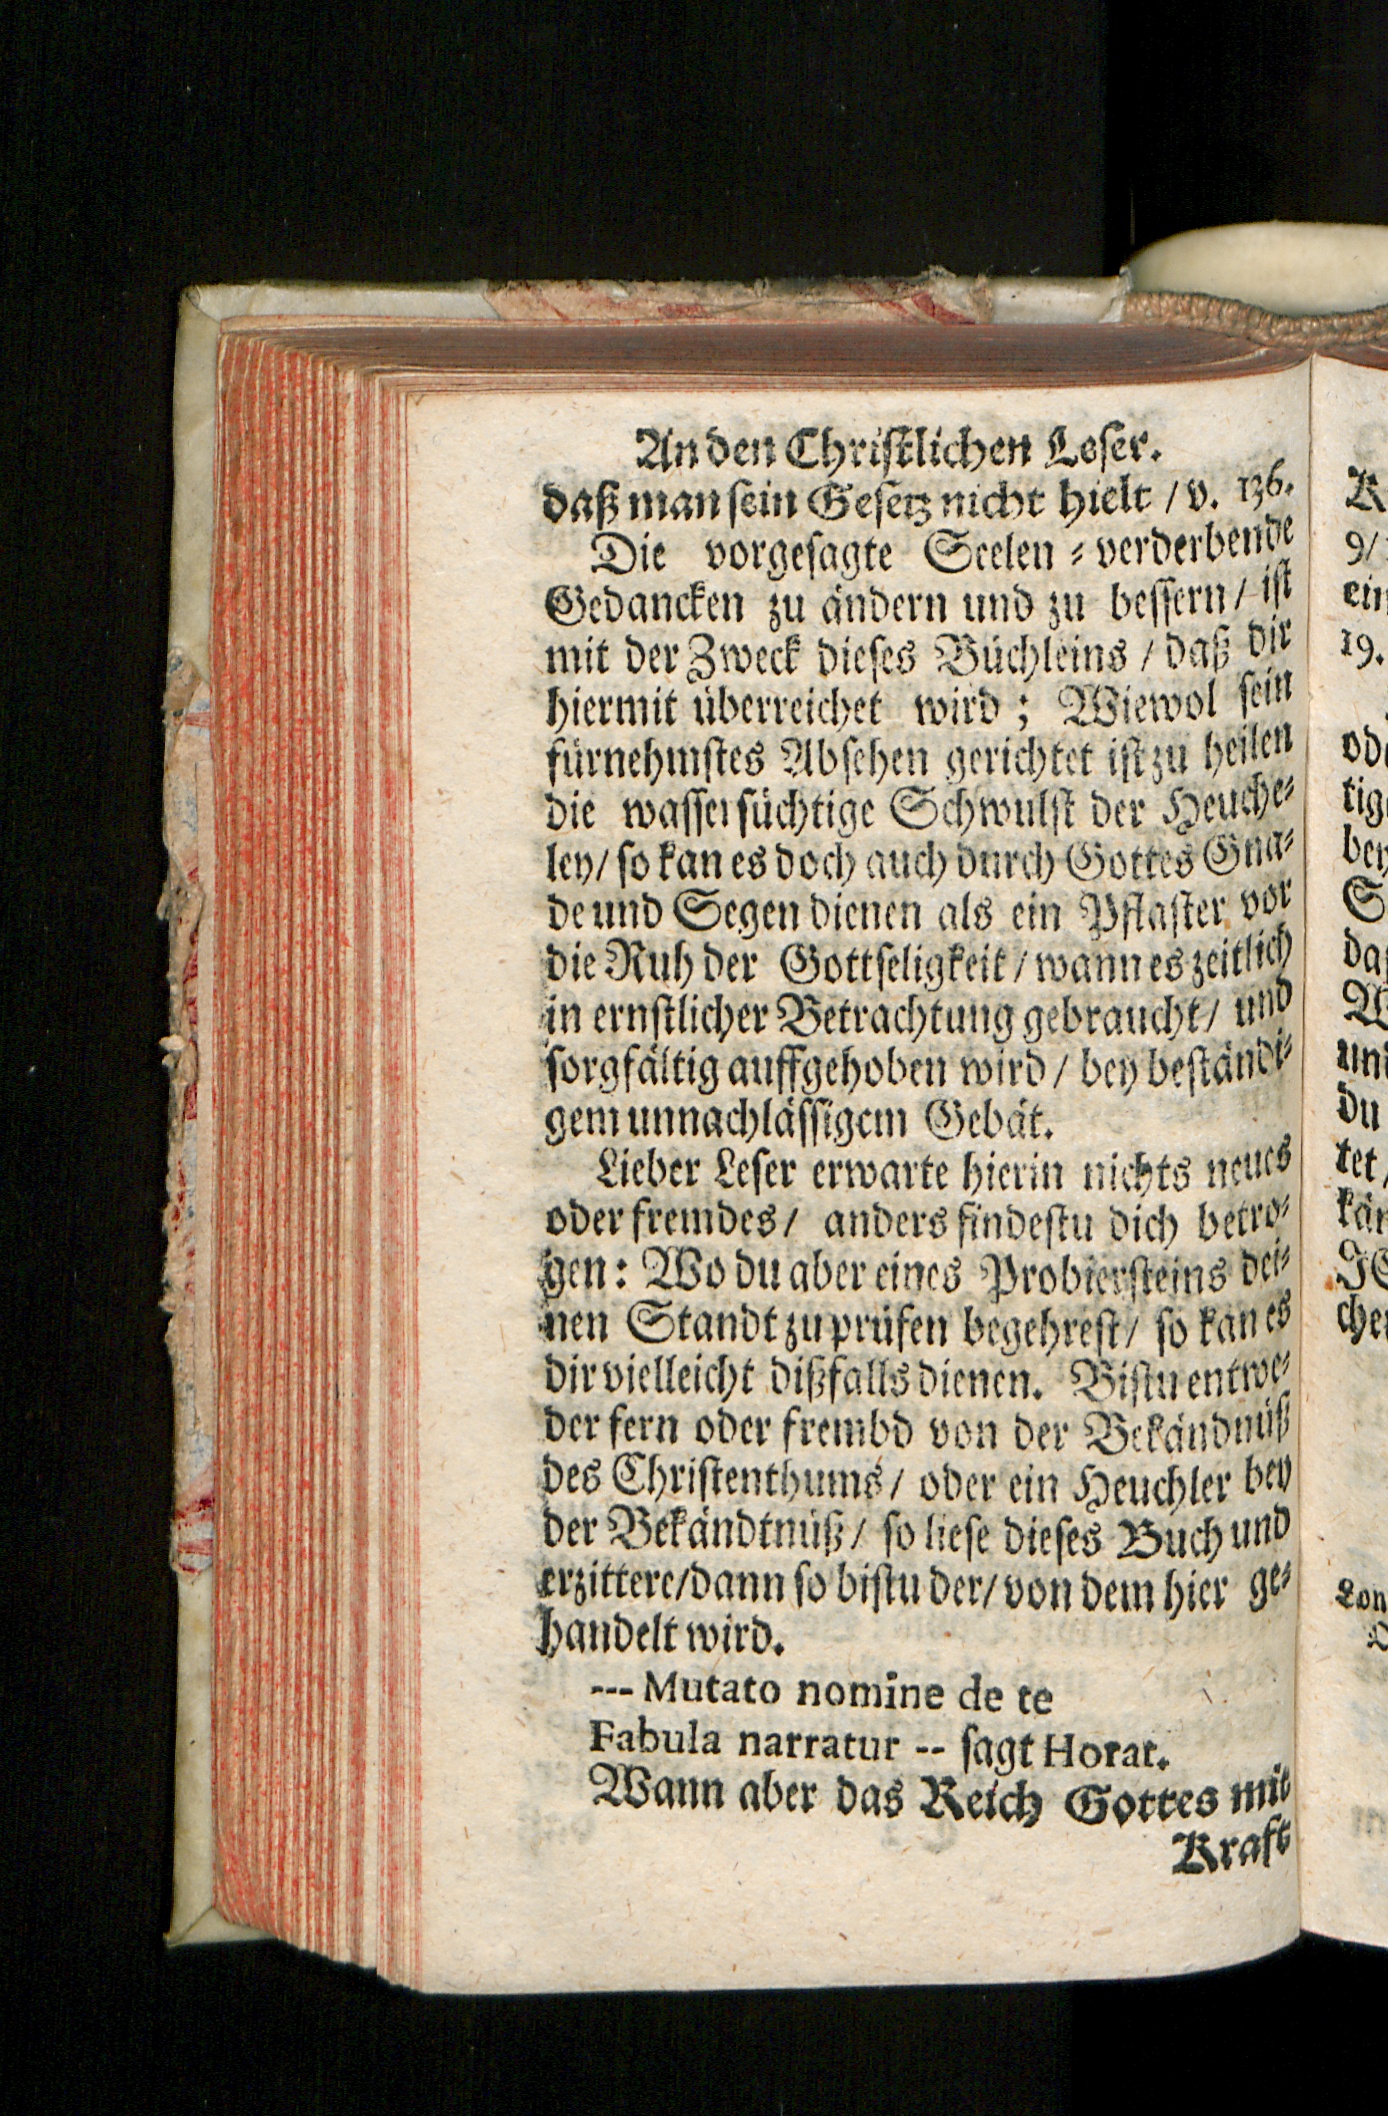 An den Christlichen Leser.
daß man sein Gesetz nicht hielt / v. 136.
Die vorgesagte Seelen ⸗ verderbende
Gedancken zu ändern und zu bessern / ist
mit der Zweck dieses Büchleins / daß dir
hiermit überreichet wird ; Wiewol sein
fürnehmstes Absehen gerichtet ist zu heilen
die wassersüchtige Schwulst der Heuche⸗
ley / so kan es doch auch durch Gottes Gna⸗
de und Segen dienen als ein Pflaster vor
die Ruh der Gottseligkeit / wann es zeitlich
in ernstlicher Betrachtung gebraucht / und
sorgfältig auffgehoben wird / bey beständi⸗
gem unnachlässigem Gebät.
Lieber Leser erwarte hierin nichts neues
oder fremdes / anders findestu dich betro⸗
gen : Wo du aber eines Probiersteins dei⸗
nen Standt zu prüfen begehrest / so kan es
dir vielleicht dißfalls dienen. Bistu entwe⸗
der fern oder frembd von der Bekändnüß
des Christenthums / oder ein Heuchler bey
der Bekändtnüß / so liese dieses Buch und
erzittere / dann so bistu der / von dem hier ge⸗
handelt wird.
--- Mutato nomine de te
Fabula narratur -- sagt Horat.
Wann aber das Reich Gottes mit
Kraft
K
9/
ein
19.
ode
tig
bey
S
da
W
und
du
tet,
kän
JE
chen
Lon